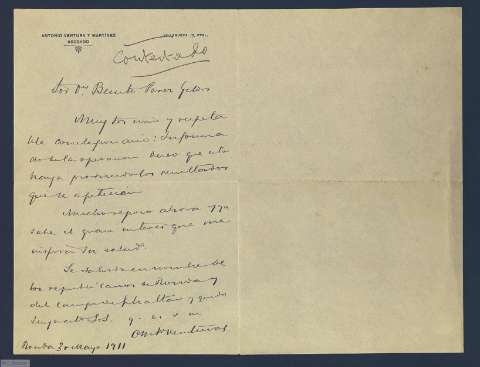 ANTONIO VENTURA Y MARTINEZ
ABOGADO
Contestado
Sor Dn Benito Perez Galdos
Muy Sor mio y respeta
ble correligionario: informa
do de la operacion deseo que esta
haya producido los resultados
que se apetecian
Mucho espero ahora y ya
sabe el gran interes que me
inspira su salud.
Le saluda en nombre de
los republicanos de Ronda y
del campo y quedo
q. e. s. m.
Anto Venturas
Ronda 3 Mayo 1911